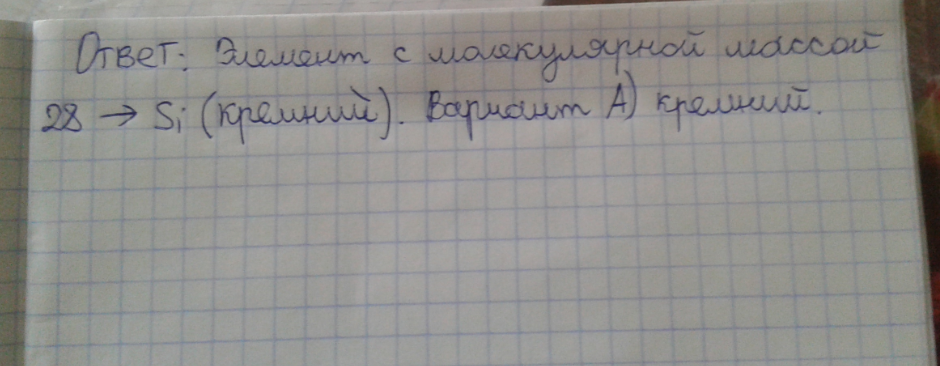 Ответ: Элемент с молекулярной массой
28 → Si (кремний). Вариант А) кремний.